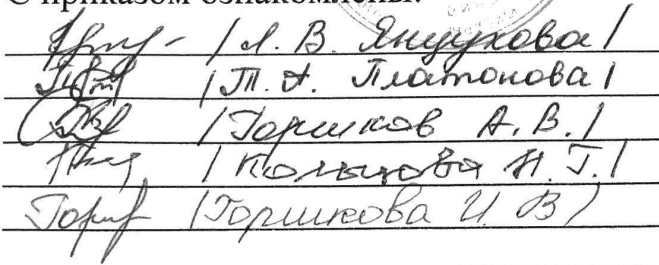 С приказом ознакомлены:
/Л. В. Яндукова/
/Т. А. Платонова/
/Горшков А. В./
/Кольцова Н. Г./
/Горшкова И В/